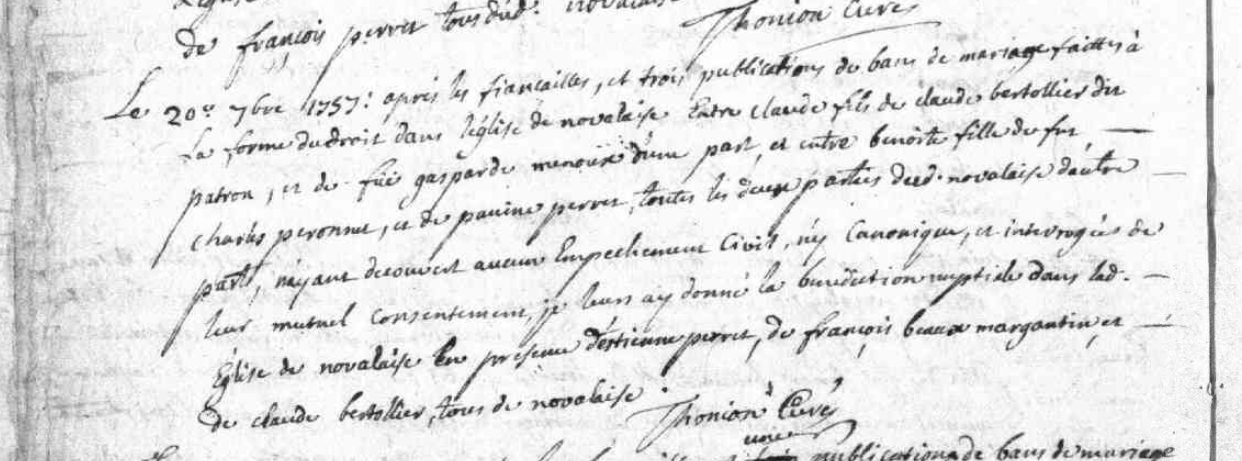 de françois perret tous dud. novalaise
Thonion Curé
Le 20e 7bre 1757: après les fiancailles, et trois publications de bans de mariage faittes à
la forme du droit dans l'église de novalaise Entre claude fils de claude bertollier dit
patron, et de füe gasparde menoux d'une part, et entre benoîte fille de fut
charles peronnet, et de pavine perret, toutes les deux parties dud. novalaise d'autre
part, n'ayant decouvert aucun Empechement Civil, ny Canonique, et interrogées de
leur mutuel consentement, je leurs ay donné la benediction nuptiale dans lad.
Église de novalaise En presence d'estienne perret, de françois beaux margantin, et
de claude bertollier, tous de novalaise.
Thonion Curé
une
publication de bans de mariage